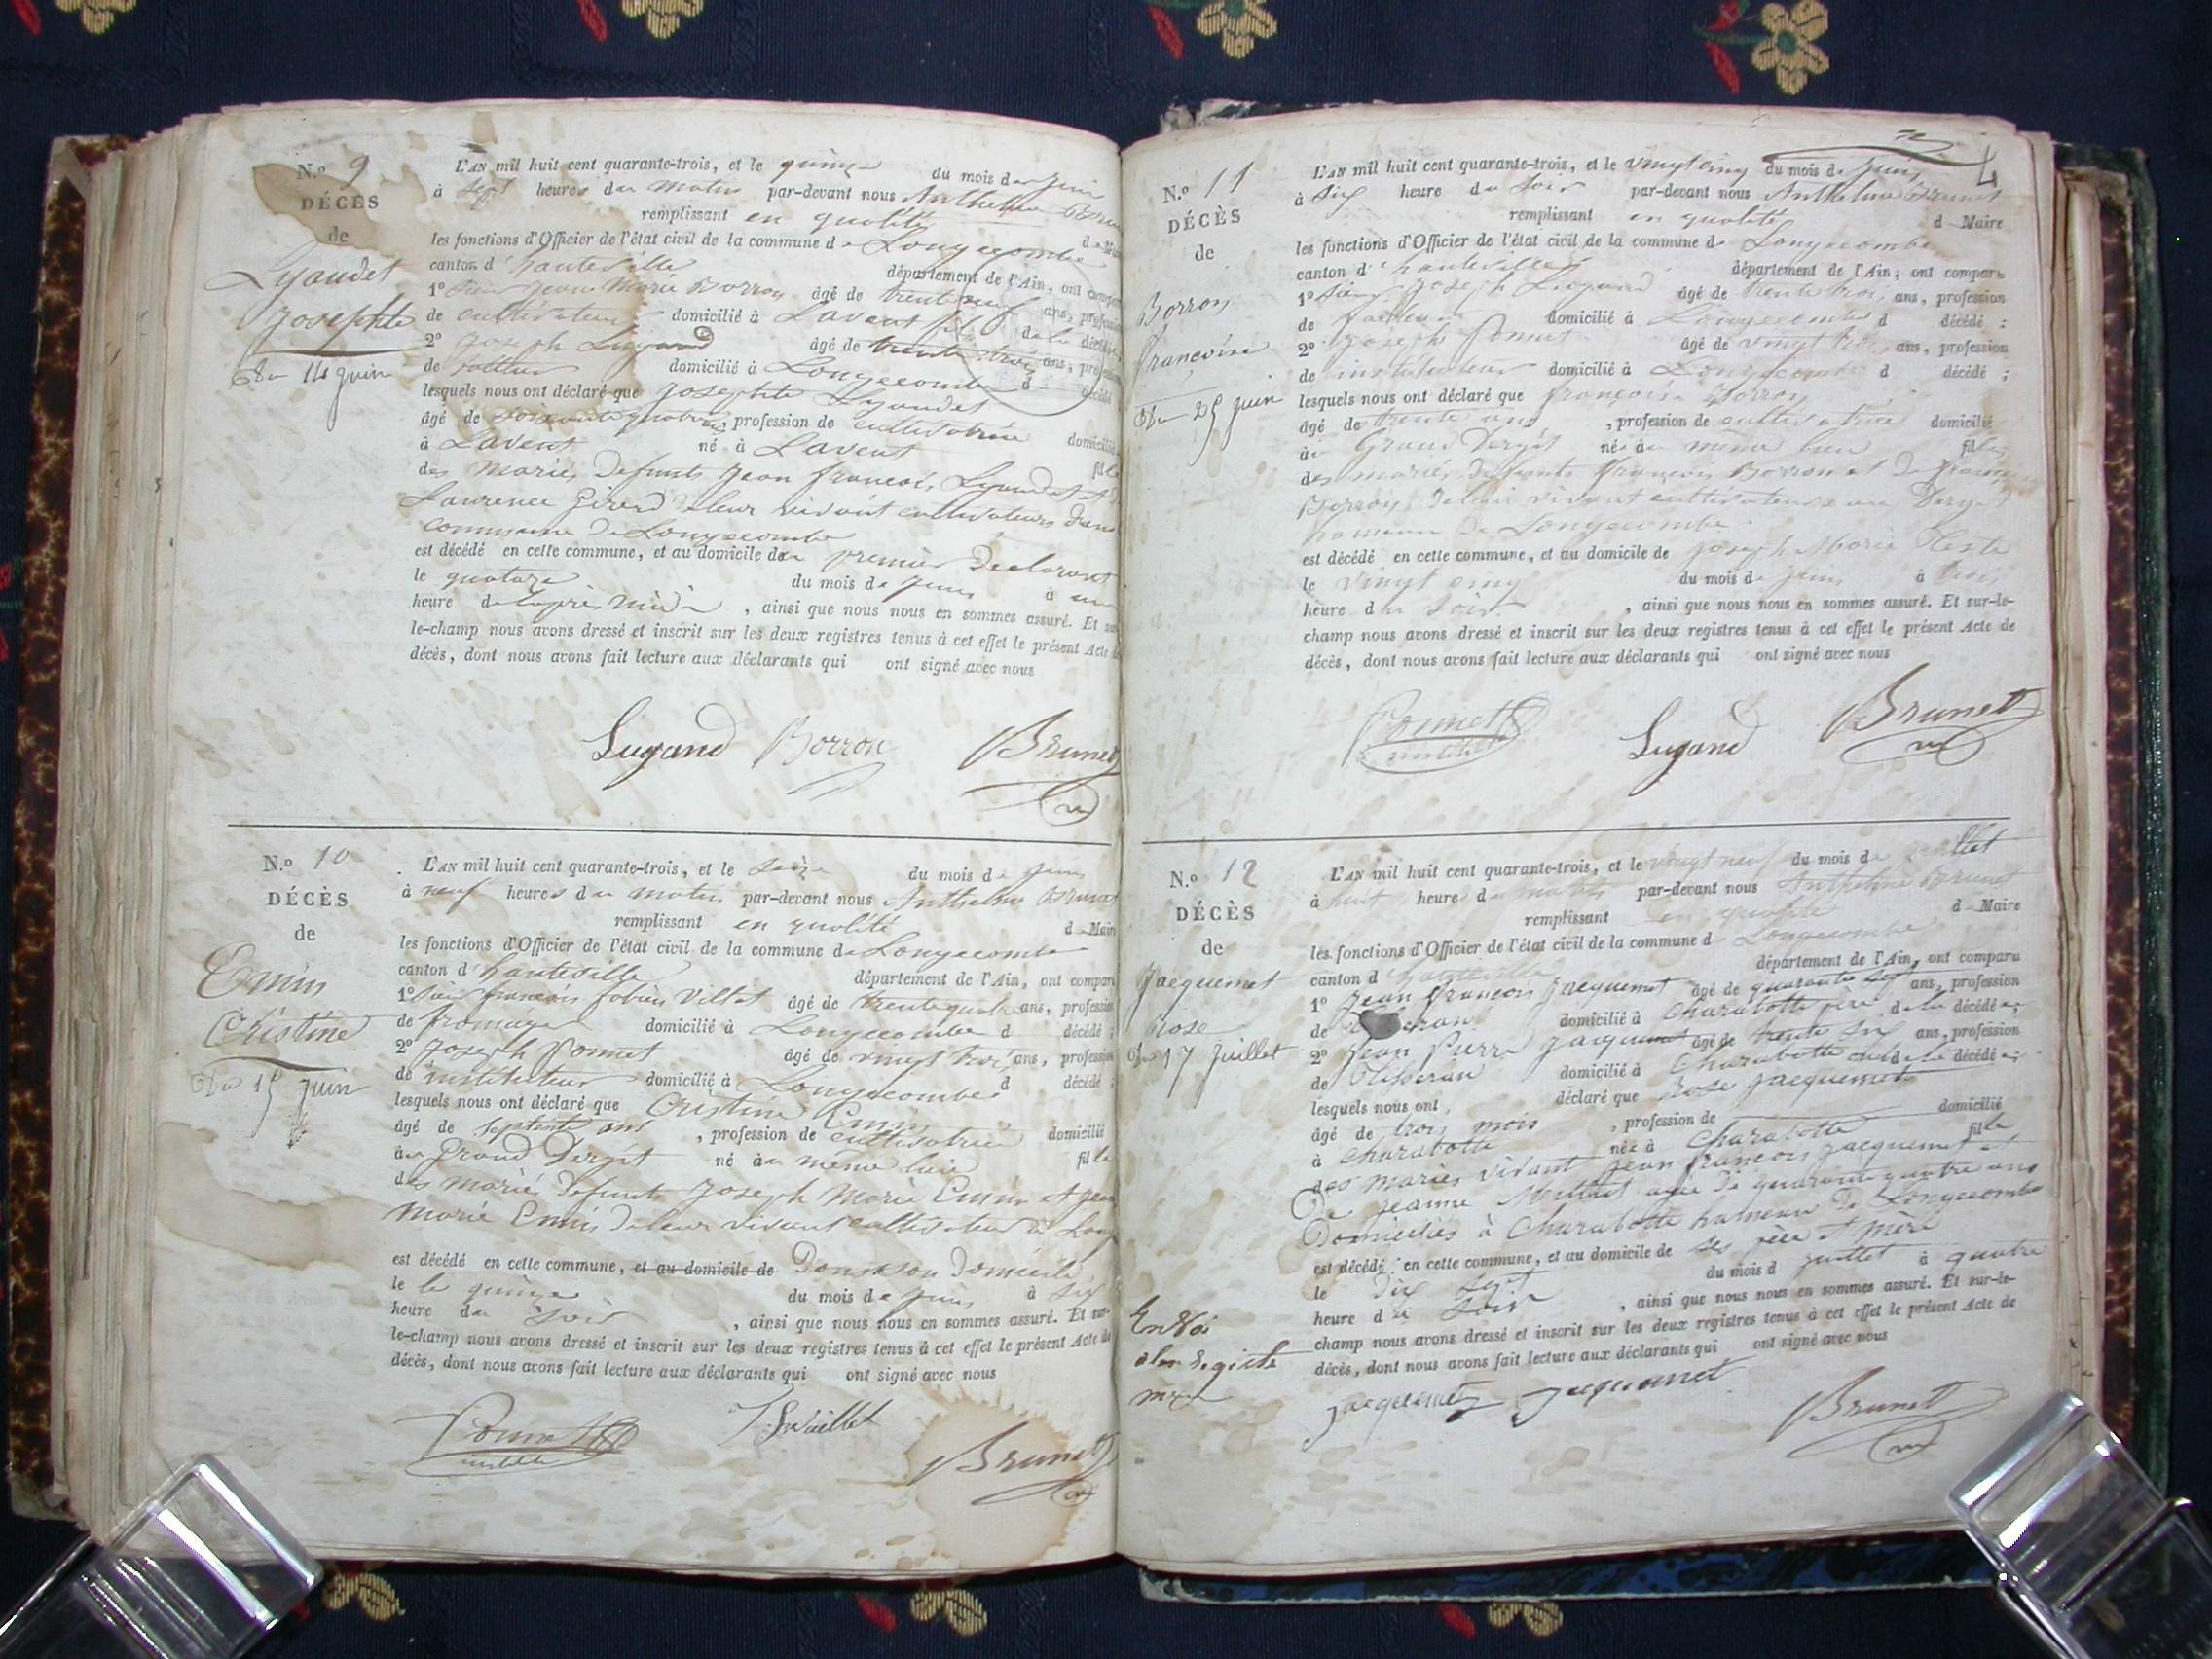 N.o 9
DÉCÈS
de
Lyaudet
Josephte
Du 14 juin
L'AN mil huit cent quarante-trois, et le quinze du mois de juin
à sept heures du matin par-devant nous Anthelme Brunet
remplissant en qualité de Maire
les fonctions d'Officier de l'état civil de la commune de Longecombe
canton d'hauteville département de l'Ain, ont comparu
1o Sieur Jean Marie Borron âgé de trente neuf ans, profession
de cultivateur domicilié à Lavent fils de la décédée
2o Joseph Lugand âgé de trente trois ans, profession
de domicilié à Longecombe d décédé
lesquels nous ont déclaré que Josephte Lyaudet
âgé de soixante quatre ans, profession de cultivatrice domicilié
à Lavent né à Lavent fille
des mariés defunts Jean francois Lyaudet et
Laurence Girerd de leur vivant cultivateurs dans
commune de Longecombe
est décédé en cette commune, et au domicile du premier declarant
le quatorze du mois de juin à une
heure de lapres midi , ainsi que nous nous en sommes assuré. Et sur-
le-champ nous avons dressé et inscrit sur les deux registres tenus à cet effet le présent Acte de
décès, dont nous avons fait lecture aux déclarants qui ont signé avec nous
Lugand Borron Brunet
N.o 10
DÉCÈS
de
Emin
Cristine
Du 15 juin
L'AN mil huit cent quarante-trois, et le seize du mois de juin
à neuf heures du matin par-devant nous Anthelme Brunet
remplissant en qualité de Maire
les fonctions d'Officier de l'état civil de la commune de Longecombe
canton d'hauteville département de l'Ain, ont comparu
1o Sieur francois fabien âgé de trente quatre ans, profession
de fromager domicilié à Longecombe d décédé ;
2o Joseph Ponnet âgé de vingt trois ans, profession
de instituteur domicilié à Longecombe d décédé ;
lesquels nous ont déclaré que Cristine Emin
âgé de septante ans , profession de cultivatrice domicilié
au Grand Dergit né au même lieu fille
des mariés defunts Joseph Marie Emin et Jean
Marie Emin de leur vivant cultivateur à Long
est décédé en cette commune, et au domicile de Dans son domicile
le le quinze du mois de juin à six
heure du soir , ainsi que nous nous en sommes assuré. Et sur-
le-champ nous avons dressé et inscrit sur les deux registres tenus à cet effet le présent Acte de
décès, dont nous avons fait lecture aux déclarants qui ont signé avec nous
Ponnet Brunet
4
N.o 11
DÉCÈS
de
Borron
francoise
Du 25 juin
L'AN mil huit cent quarante-trois, et le vingt cinq du mois de juin
à six heure du soir par-devant nous Anthelme Brunet
remplissant en qualité d Maire
les fonctions d'Officier de l'état civil de la commune de Longecombe
canton d'hauteville département de l'Ain, ont comparu
1o Sieur Joseph Lugand âgé de trente trois ans, profession
de domicilié à Longecombe d décédé ;
2o Joseph Ponnet âgé de vingt trois ans, profession
de instituteur domicilié à Longecombe d décédé ;
lesquels nous ont déclaré que francoise Borron
âgé de trente ans , profession de cultivatrice domicilié
au Grand Dergit né au même lieu fille
des mariés defunts francois Borron et De
Borron de leur vivant cultivateurs au Dergit
hameau de Longecombe
est décédé en cette commune, et au domicile de Joseph Marie
le vingt cinq du mois de juin à trois
heure du soir , ainsi que nous nous en sommes assuré. Et sur-le-
champ nous avons dressé et inscrit sur les deux registres tenus à cet effet le présent Acte de
décès, dont nous avons fait lecture aux déclarants qui ont signé avec nous
Ponnet Lugand Brunet
N.o 12
DÉCÈS
de
Jacquemet
Rose
Du 17 Juillet
L'AN mil huit cent quarante-trois, et le vingt neuf du mois de juillet
à huit heure du matin par-devant nous Anthelme Brunet
remplissant en qualité d Maire
les fonctions d'Officier de l'état civil de la commune d Longecombe
canton d hauteville département de l'Ain, ont comparu
1o Jean francois Jacquemet âgé de quarante sept ans, profession
de domicilié à Charabotte père de la décédée ;
2o Jean Pierre Jacquemet âgé de trente six ans, profession
de Tisseran domicilié à Charabotte de la décédée ;
lesquels nous ont déclaré que Rose Jacquemet
âgé de trois mois , profession de domicilié
à Charabotte née à Charabotte fille
des mariés vivant Jean francois Jacquemet et
De Jeanne agée de quarante quatre ans
Domiciliés à Charabotte hameau De Longecombe
est décédé en cette commune, et au domicile de ses père et mère
le Dix sept du mois d juillet à quatre
heure du soir , ainsi que nous nous en sommes assuré. Et sur-le-
champ nous avons dressé et inscrit sur les deux registres tenus à cet effet le présent Acte de
décès, dont nous avons fait lecture aux déclarants qui ont signé avec nous
Jacquemet Jacquemet Brunet